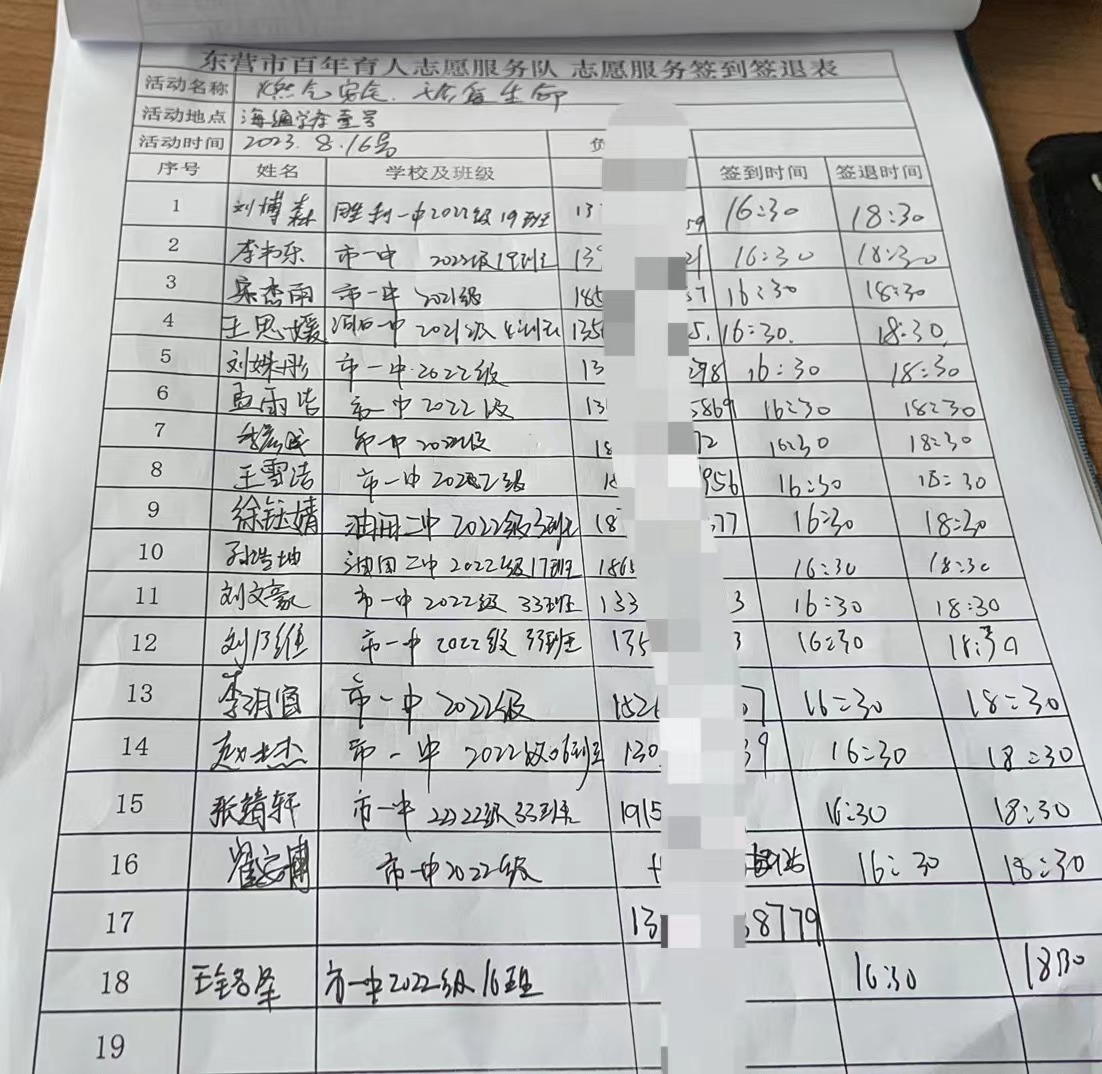 东营市百年育人志愿服务队 志愿服务签到签退表
活动名称 燃气安全,
活动地点 海通学府壹号
活动时间 2023.8.16号 负
序号 姓名 学校及班级 签到时间 签退时间
1 刘博森 胜利一中2022级19班 13 59 16:30 18:30
2 市一中 2022级19班 13 21 16:30 18:30
3 宋杰雨 市一中 2021级 185 57 16:30 18:30
4 王思媛 2021级 135 5. 16:30. 18:30.
5 刘姝彤 市一中·2022级 13 298 16:30 18:30
6 孟雨浩 市一中2022级 13 5869 16:30 18:30
7 市一中2022级 18 72 16:30 18:30
8 王雪洁 市一中2022级 956 16:30 18:30
9 徐钰婧 油田二中2022级3班 18 77 16:30 18:30
10 孙浩坤 油田二中2022级17班 186 16:30 18:30
11 刘文豪 市一中2022级 33班 133 3 16:30 18:30
12 刘乃维 市一中 2022级 33班 135 3 16:30 18:30
13 李玥宣 市一中 2022级 1526 07 16:30 18:30
14 赵士杰 市一中 2022级06班 130 39 16:30 18:30
15 张靖轩 市一中 2022级33班 1915 16:30 18:30
16 翟安博 市一中2022级 16:30 18:30
17 13 8779
18 市一中2022级16班 16:30 18:30
19